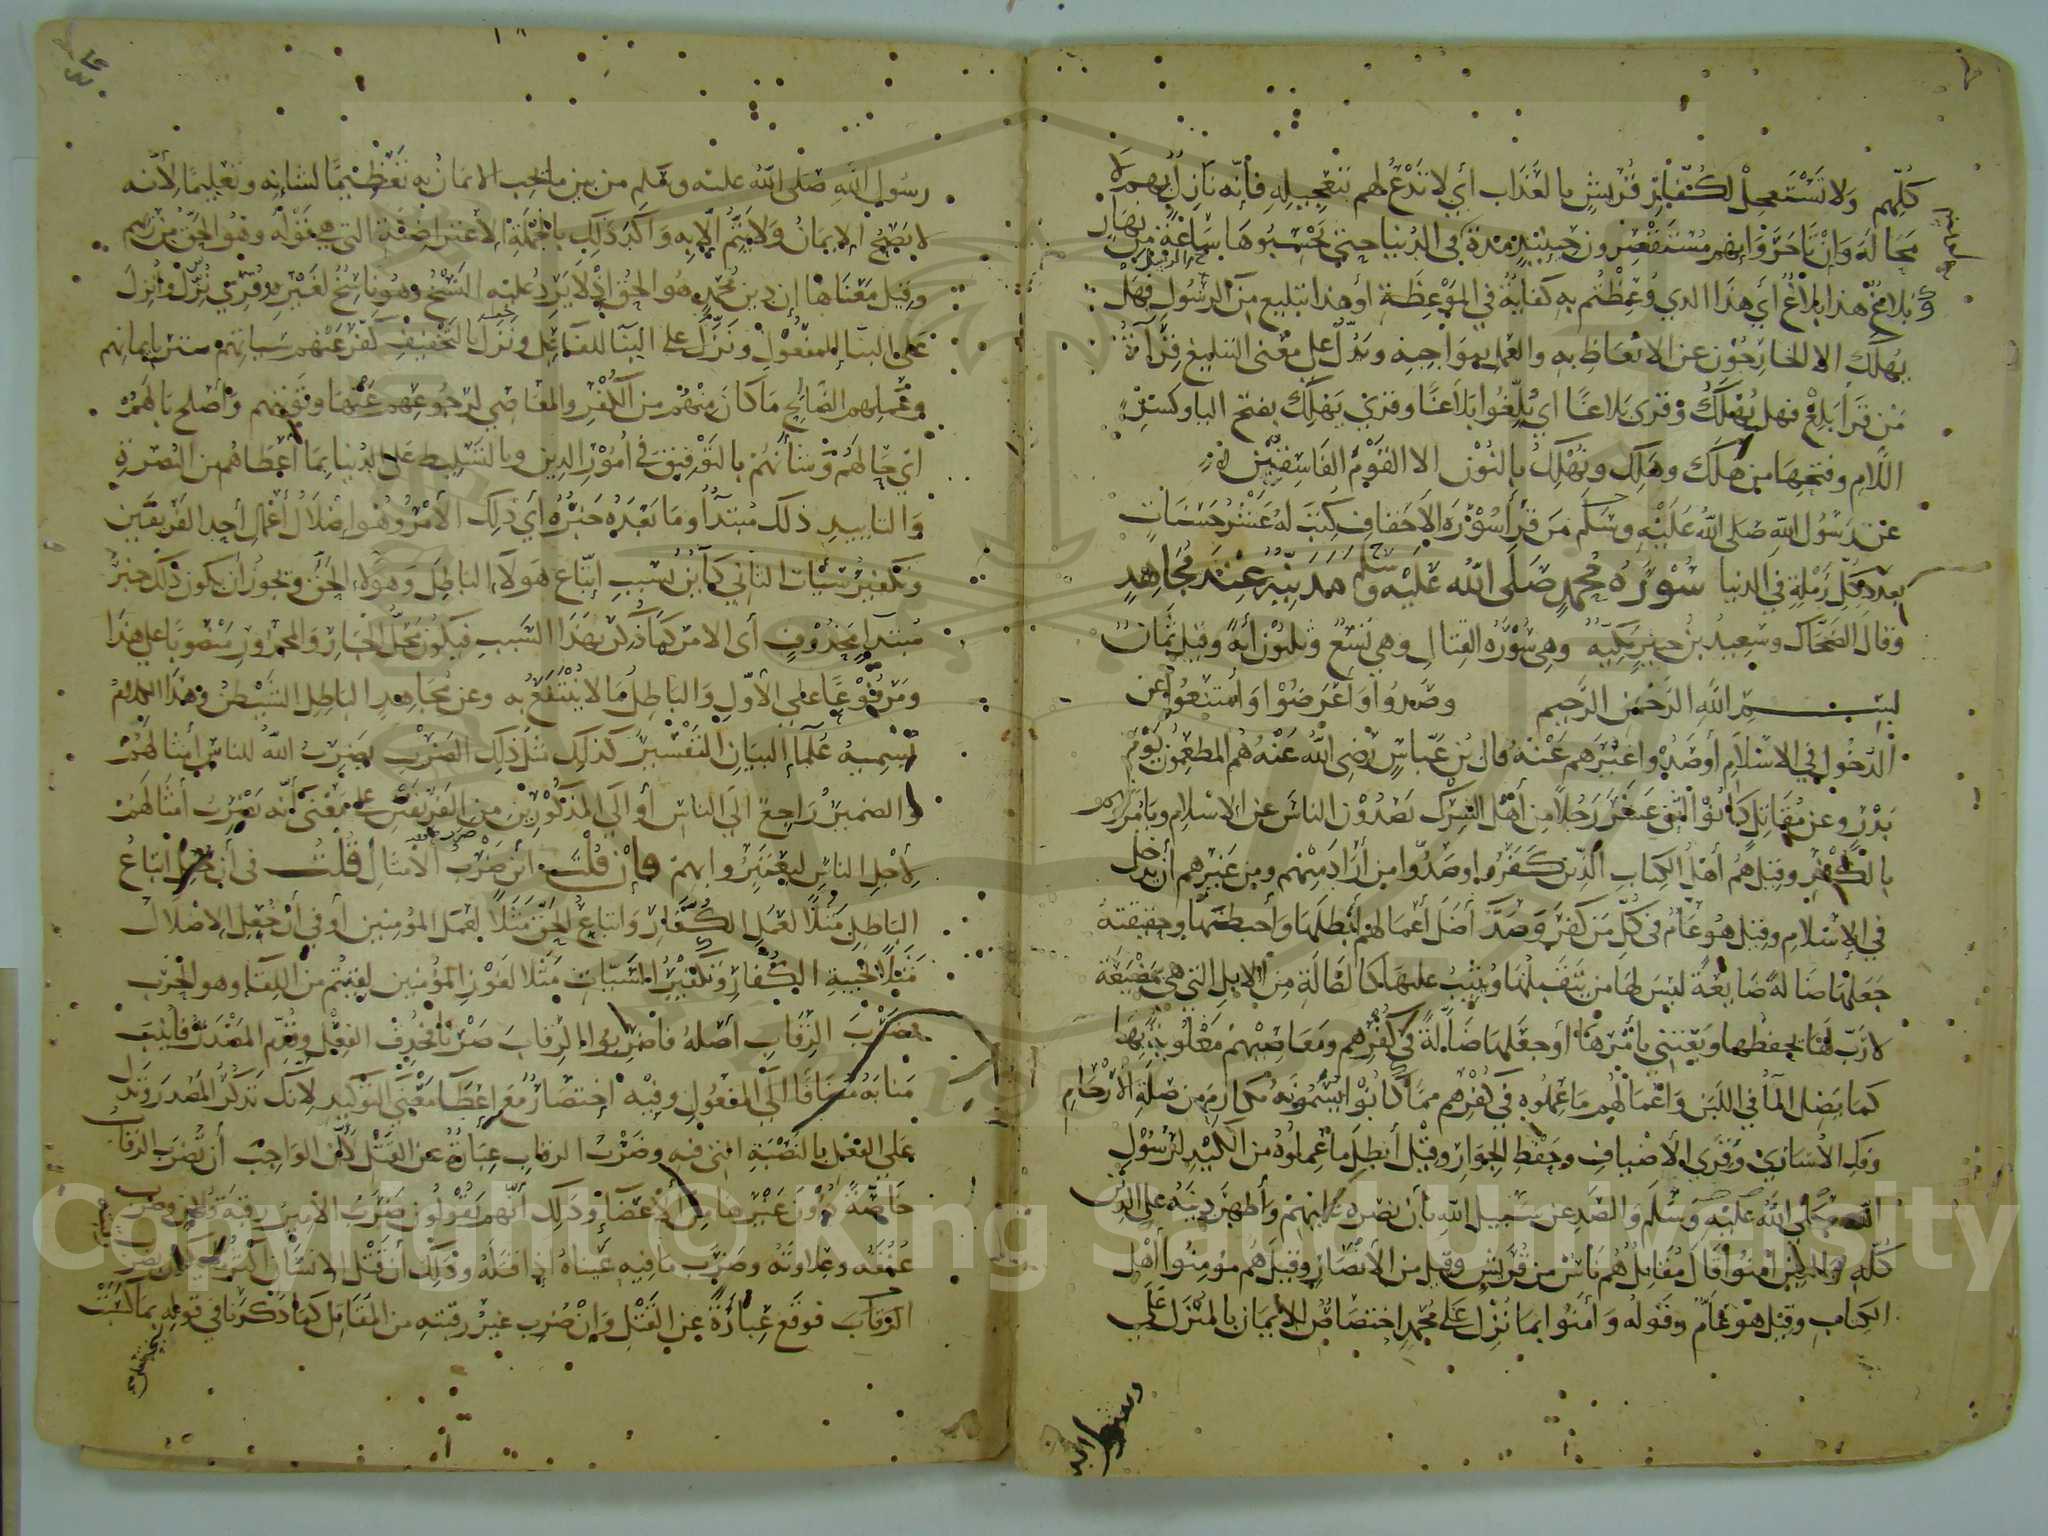 كلهم ولا تستعجل لكفار قريش بالعذاب أي لا تدع لهم بتعجيله فإنه نازل بهم لا
محالة وإن تأخر وإنهم مستقصرون حينئذ مدة في الدنيا حتى يحسبوها ساعة من نهار
بلاغ هذا بلاغ أي هذا الذي وعظتم به كفاية في الموعظة أو هذا تبليغ من الرسول فهل
يهلك الا الخارجون عن الاتعاظ به والعمل بمواجبه ويدل على معنى التبليغ قراءة
من قرأ بلغ فهل يهلك وقرئ بلاغا أي بلغوا بلاغا وقرئ يهلك بفتح اليا وكسر
اللام وفتحها من هلك وهلك ونهلك بالنون الا القوم الفاسقين
عن رسول الله صلى الله عليه وسلم من قرأ سورة الاحقاف كتب له عشر حسنات
بعدد كل رملة في الدنيا سورة محمد صلى الله عليه وسلم مدنية عند مجاهد
وقال الضحاك وسعيد بن جبير مكية وهي سورة القتال وهي تسع وثلثون أية وقيل ثمان
بسم الله الرحمن الرحيم وصدوا وأعرضوا وامتنعوا عن
الدخول في الاسلام أو صدوا غيرهم عنه قال بن عباس رضي الله عنه هم المطعمون يوم
بدر وعن مقاتل كانوا اثنى عشر رجلا من أهل الشرك يصدون الناس عن الاسلام ويأمرونهم
بالكفر وقيل هم أهل الكتاب الذين كفروا وصدوا من أراد منهم ومن غيرهم أن يدخل
في الاسلام وقيل هو عام في كل من كفر وصد أضل أعمالهم أبطلها وأحبطها وحقيقته
جعلها ضالة ضايعة ليس لها من يتقبلها ويثيب عليها كالضالة من الابل التي هي بمضيعة
لا رب لها يحفظها ويعتني بأمرها أو جعلها ضالة في كفرهم ومعاصيهم مغلوبة بها
كما يضل الماء في اللبن وأعمالهم ما عملوه في كفرهم مما كانوا يسمونه مكارم من صلة الأرحام
وفك الأسارى وقرى الأضياف وحفظ الجوار وقيل أبطل ما عملوه من الكيد لرسول
الله صلى الله عليه وسلم والصد عن سبيل الله بأن نصره عليهم وأظهر دينه على الدين
كله والذين امنوا قال مقاتل هم ناس من قريش وقيل من الأنصار وقيل هم مؤمنوا أهل
الكتاب وقيل هو عام وقوله وأمنوا بما نزل على محمد اختصاص للأيمان بالمنزل على
رسول الله
رسول الله صلى الله عليه وسلم من بين ما يجب الايمان به تعظيما لشانه وتعليما لأنه
لا يصح الإيمان ولا يتم إلا به وأكد ذلك بالجملة الاعتراضية التي هي قوله وهو الحق من ربهم
وقيل معناها إن دين محمد هو الحق إذ لا يرد عليه النسخ وهو ناسخ لغيره وقرئ نزل وأنزل
على البنا للمفعول ونزل على البنا للفاعل ونزل بالتخفيف كفر عنهم سيأتهم ستر بايمانهم
وعملهم الصالح ما كان منهم من الكفر والمعاصي لرجوعهم عنها وتوبتهم وأصلح بالهم
أي حالهم وشأنهم بالتوفيق في أمور الدين وبالتسليط على الدنيا بما أعطاهم من النصرة
والتاييد ذلك مبتدأ وما بعده خبره أي ذلك الأمر وهو إضلال أعمال أحد الفريقين
وتكفير سيئات الثاني كائن بسبب إتباع هولاء الباطل وهولاء الحق ويجوز أن يكون ذلك خبر
مبتدا محذوف أى الامر كما ذكر بهذا السبب فيكون محل الجار والمجرور منصوبا على هذا
ومرفوعا على الأول والباطل ما لا ينتفع به وعن مجاهد الباطل الشيطن وهذا الكلام
تسميه علماء البيان التفسير كذلك مثل ذلك الضرب يضرب الله للناس أمثالهم
والضمير راجع إلى الناس أو إلى المذكورين من الفريقين على معنى أنه يضرب أمثالهم
لأجل الناس ليعتبروا بهم فان قلت أين ضرب الأمثال قلت في أن جعل اتباع
الباطل مثلا لعمل الكفار واتباع الحق مثلا لعمل المؤمنين أو في أن جعل الاضلال
مثلا لخيبة الكفار وتكفير السيات مثلا لفوز المؤمنين لقيتم من اللقاء وهو الحرب
فضرب الرقاب أصله فاضربوا الرقاب ضربا فحذف الفعل وقدم المصدر فأنيب
منابه مضافا الى المفعول وفيه اختصار مع إعطاء معنى التوكيد لانك تذكر المصدر وتدل
على الفعل بالنصبة التي فيه وضرب الرقاب عبارة عن القتل لأن الواجب أن تضرب الرقاب
خاصة دون غيرها من الأعضاء وذلك أنهم يقولون ضرب الأمير رقبة فلان وضرب
عنقه وعلاوته وضرب ما فيه عيناه إذا قتله وذلك أن قتل الانسان أكثر ما يكون بضرب
الرقاب فوقع عبارة عن القتل وإن ضرب غير رقبته من المقاتل كما ذكرنا في قوله بما كسبت